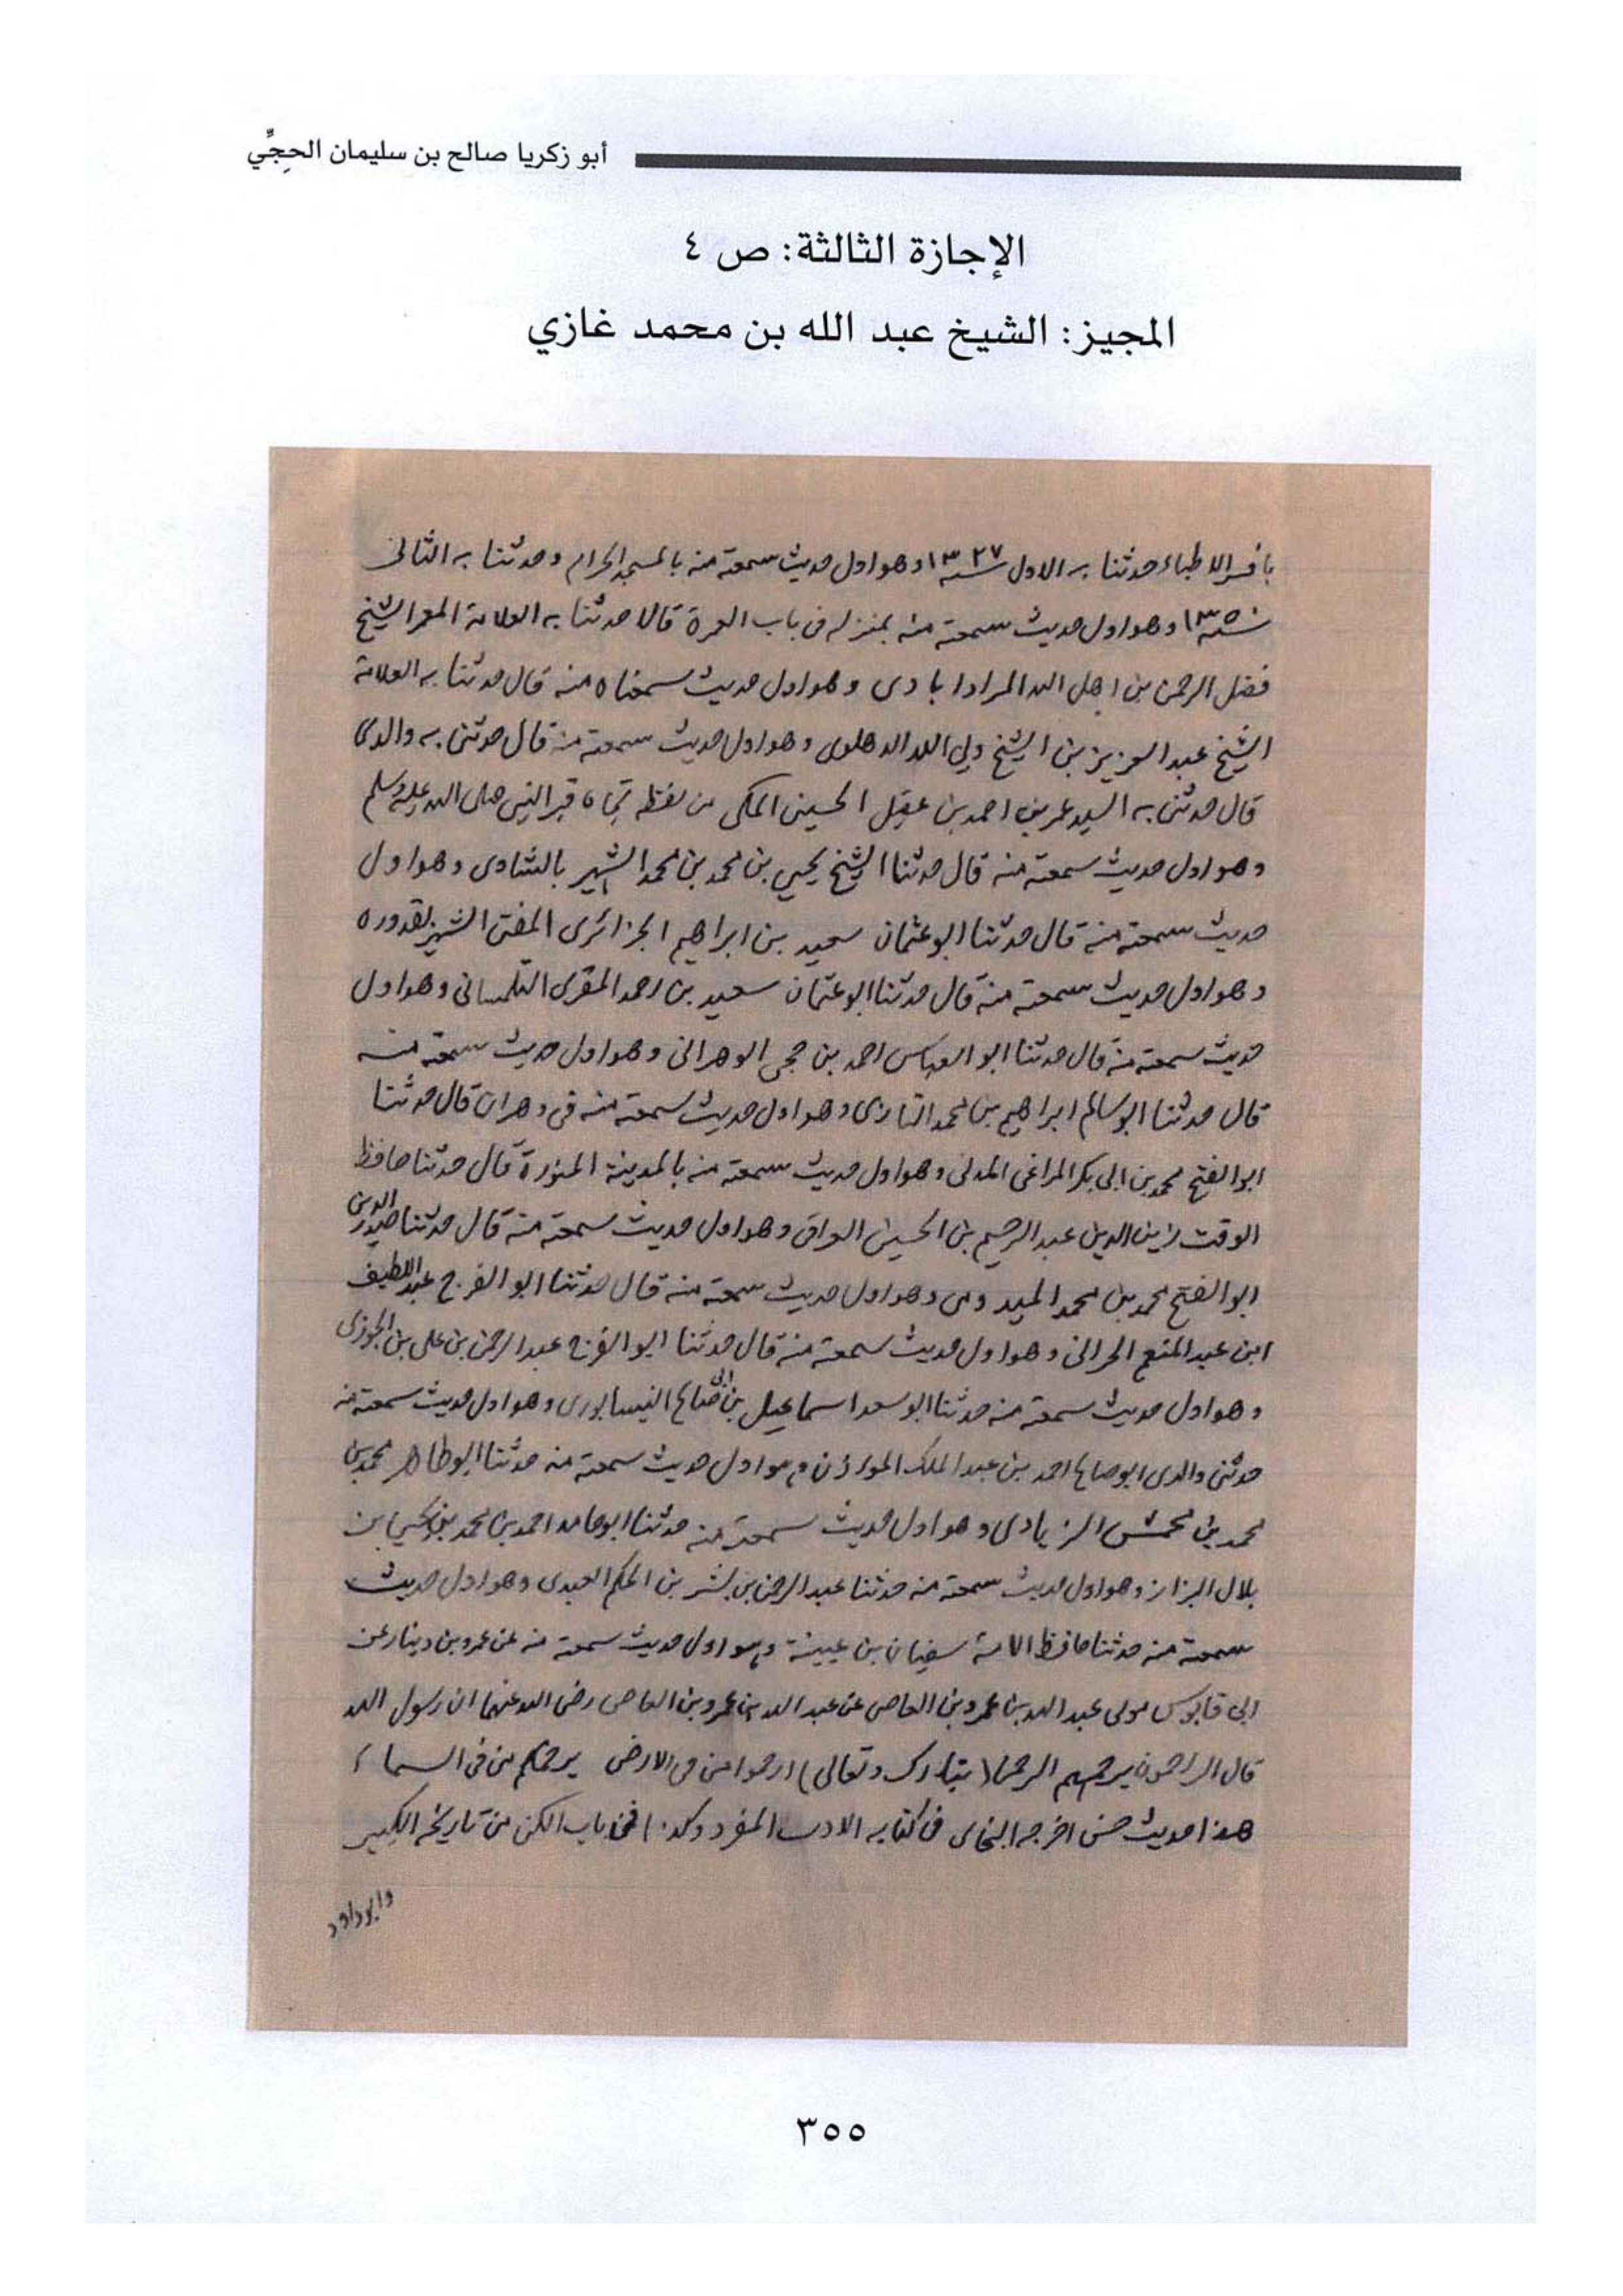 أبو زكريا صالح بن سليمان الحِجِّي
الإجازة الثالثة: ص ٤
المجيز: الشيخ عبد الله بن محمد غازي
الاطباء حدثنا به الاول سنة ١٣٢٧ وهو اول حديث سمعته منه بالمسجد الحرام وحدثنا به الثانى
سنة ١٣٥٠ وهو اول حديث سمعته منه بمنزله فى باب العمرة قالا حدثنا به العلامة المعمر الشيخ
فضل الرحمن بن اهل الله المرادابادى وهو اول حديث سمعناه منه قال حدثنا به العلامة
الشيخ عبد العزيز بن الشيخ ولي الله الدهلوى وهو اول حديث سمعته منه قال حدثنى به والدى
قال حدثنى به السيد عمر بن احمد بن عقيل الحسينى المكى من لفظه تجاه قبر النبى صلى الله عليه وسلم
وهو اول حديث سمعته منه قال حدثنا الشيخ يحيى بن محمد بن محمد الشهير بالشاوى وهو اول
حديث سمعته منه قال حدثنا ابو عثمان سعيد بن ابراهيم الجزائرى المفتى الشهير بقدوره
وهو اول حديث سمعته منه قال حدثنا ابو عثمان سعيد بن احمد المقرى التلمسانى وهو اول
حديث سمعته منه قال حدثنا ابو العباس احمد بن حجى الوهرانى وهو اول حديث سمعته منه
قال حدثنا ابو سالم ابراهيم بن محمد التازى وهو اول حديث سمعته منه فى وهران قال حدثنا
ابو الفتح محمد بن ابى بكر المراغى المدنى وهو اول حديث سمعته منه بالمدينة المنورة قال حدثنا حافظ
الوقت زين الدين عبد الرحيم بن الحسين العراقى وهو اول حديث سمعته منه قال حدثنا صدر الدين
ابو الفتح محمد بن محمد الميدومى وهو اول حديث سمعته منه قال حدثنا ابو الفرج عبد اللطيف
ابن عبد المنعم الحرانى وهو اول حديث سمعته منه قال حدثنا ابو الفرج عبد الرحمن بن على بن الجوزى
وهو اول حديث سمعته منه حدثنا ابو سعد اسماعيل بن ابى صالح النيسابورى وهو اول حديث سمعته منه
حدثنى والدى ابو صالح احمد بن عبد الملك الموذن وهو اول حديث سمعته منه حدثنا ابو طاهر محمد بن
محمد بن محمش الزيادى وهو اول حديث سمعته منه حدثنا ابو حامد احمد بن محمد بن يحيى بن
بلال البزاز وهو اول حديث سمعته منه حدثنا عبد الرحمن بن بشر بن الحكم العبدى وهو اول حديث
سمعته منه حدثنا حافظ الامة سفيان بن عيينة وهو اول حديث سمعته منه عن عمرو بن دينار عن
ابى قابوس مولى عبد الله بن عمرو بن العاصى عن عبد الله بن عمرو بن العاصى رضى الله عنهما ان رسول الله
قال الراحمون يرحمهم الرحمن (تبارك وتعالى) ارحموا من فى الارض يرحمكم من فى السماء
هذا حديث حسن اخرجه البخارى فى كتابه الادب المفرد وكذا فى باب الكنى من تاريخه الكبير
وابو داود
٣٥٥